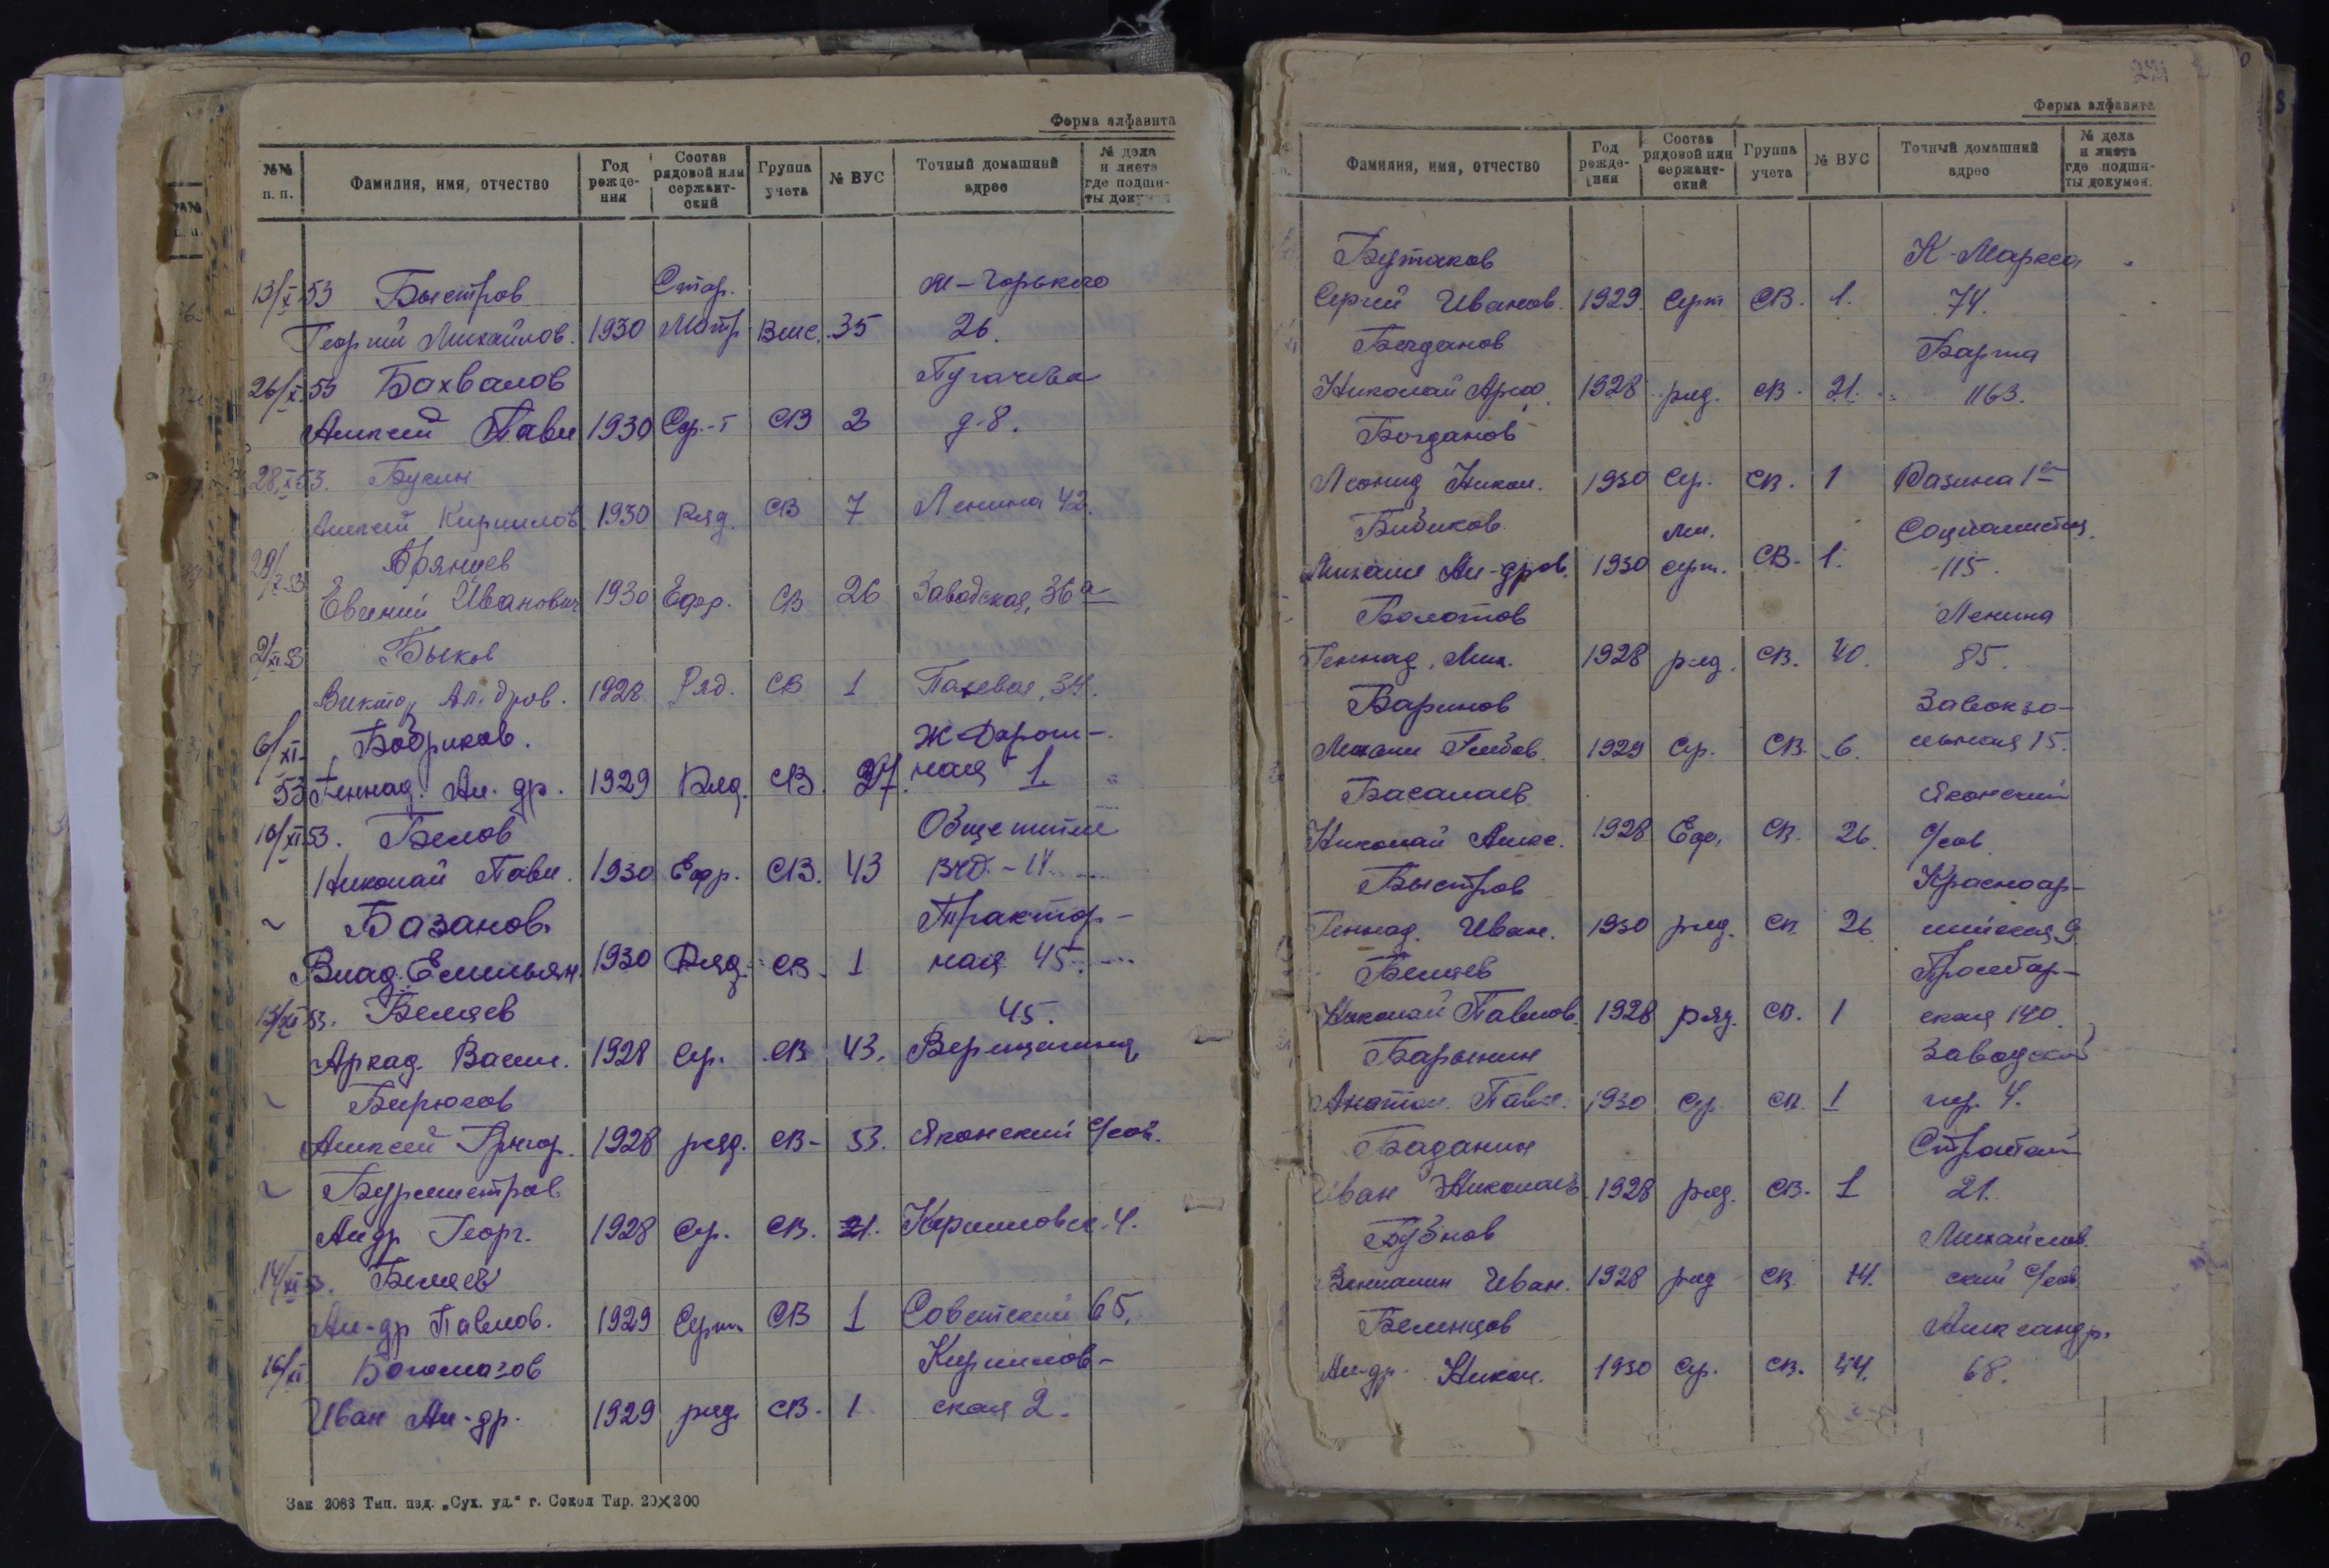 Форма алфавита
№№ п. п.
Фамилия, имя, отчество
Год рожде-ния
Состав рядовой или сержант-ский
Группа учета
№ ВУС
Точный домашний адрес
№ дела и листа где подши-ты докумен
13/X 53 Быстров Стар. М-Горького
Георгий Михайлов. 1930 Матр Вмс. 35 26.
26/X 53 Бахвалов Пугачева
Алексей Павл 1930 Сер-т СВ 2 д-8.
28/X 53. Букин
Алексей Кириллов. 1930 Ряд. СВ 7 Ленина 42.
29/X-53 Брянцев
Евгений Иванович 1930 Ефр. СВ 26 Заводская, 36а
2/XI 53 Быков
Виктор Ал. дров. 1928 Ряд. СВ 1 34.
6/XI- Бобриков. Ж Дорож-
53 Геннад. Ал. др. 1929 Ряд. СВ. 27. ная 1
10/XI 53. Белов Общежитие
Николай Павл. 1930 Ефр. СВ. 43
Базанов Трактор-
Влад. Емельян. 1930 Ряд. СВ. 1 ная 45.
13/XI 53. Беляев 45.
Аркад. Васил. 1928 Ср. СВ 43. Верещагина
Бирюков
Алексей Григор. 1928 ряд. СВ- 53. Яконский с/сов.
Бурмистров
Ал др Георг. 1928 Ср. СВ. 21. Кирилловск. 4.
14/XI 53. Беляев
Ал-др Павлов. 1929 Серж СВ 1 Советский 65.
16/XI Богомазов Кириллов-
Иван Ал-др. 1929 ряд. СВ. 1 ская 2.
Зак 2063 Тип. изд. „Сух. уд." г. Сокол Тир. 20×200
Форма алфавита
Фамилия, имя, отчество
Год рожде-ния
Состав рядовой или сержант-ский
Группа учета
№ ВУС
Точный домашний адрес
№ дела и листа где подши-ты докумен.
Бутаков К-Маркса
Сергей Иванов. 1929 Серж СВ. 1. 74.
Богданов
Николай 1928 ряд. СВ. 21. 163.
Богданов
Леонид Никол. 1930 Ср. СВ. 1 Разина 1а
Бибиков мл. Социалистич.
Михаил Ал-дров. 1930 серж. СВ- 1. 115.
Болотов Ленина
Геннад. Мих. 1928 ряд. СВ. 40. 85.
Баринов Завокза-
Глебов. 1929 Ср. СВ. 6. льная 15.
Басалаев Яконский
Николай Алекс. 1928 Ефр. СВ. 26. с/сов
Быстров Красноар-
Геннад. Иван. 1930 ряд. СВ. 26. мейская 9
Беляев Пролетар-
Николай Павлов. 1928 ряд. СВ. 1 ская 140.
Барынин Заводской
Анатол. Павл. 1930 Ср СВ. 1 пер. 4.
Баданин
Иван Николаев. 1928 ряд. СВ. 1 21.
Бубнов Михайлов.
Вениамин Иван. 1928 ряд СВ. 14. ский с/сов
Беленцов Александр.
Ал-др. Никол. 1930 Ср. СВ. 44. 68.